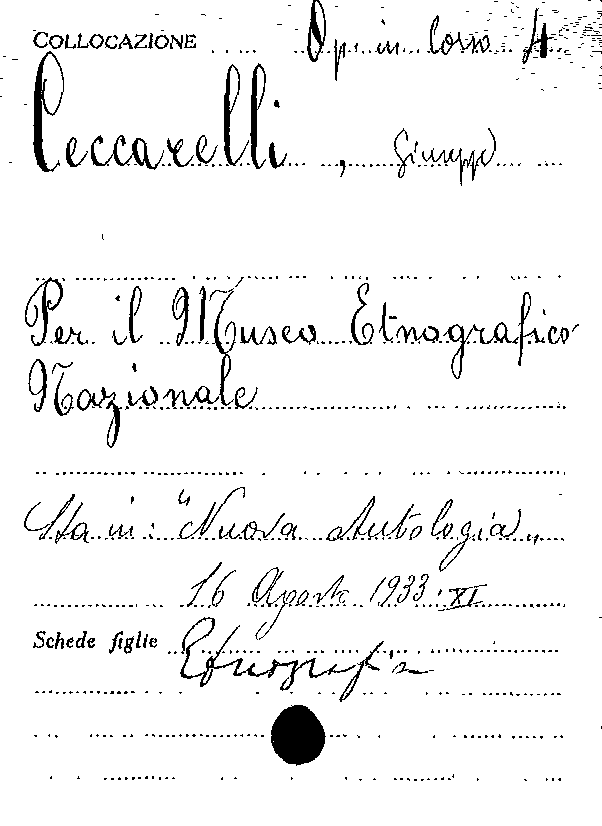 COLLOCAZIONE Op. in corso 4
Ceccarelli, Giuseppe
Per il Museo Etnografico
Nazionale
Sta in: "Nuova Antologia„
16 Agosto 1933 . XI
Schede figlie Etnografia